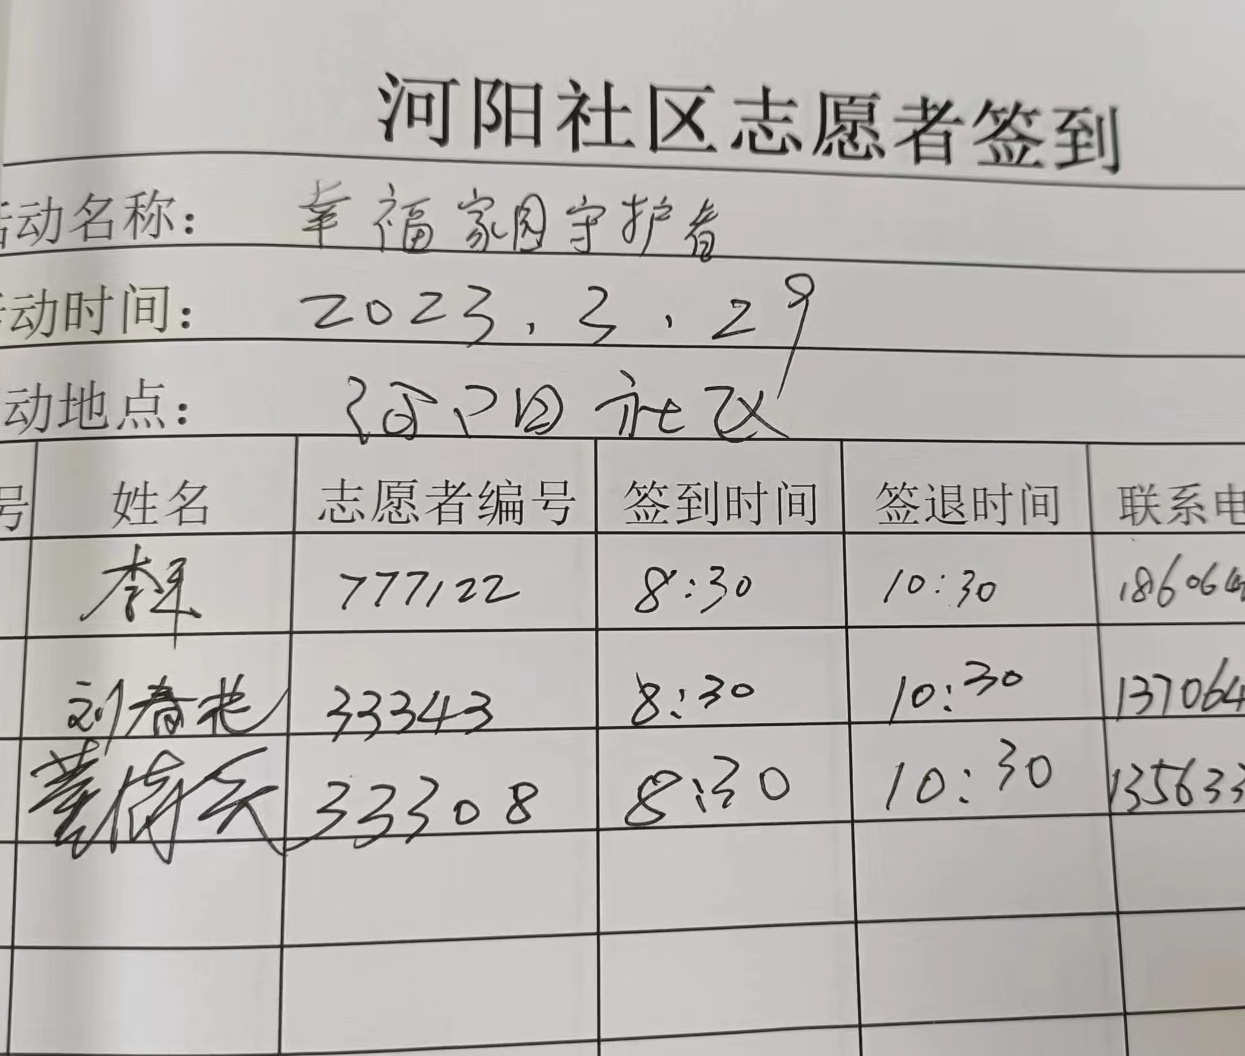 河阳社区志愿者签到
活动名称: 幸福家园守护者
活动时间: 2023.3.29
动地点: 河阳社区
号 姓名 志愿者编号 签到时间 签退时间 联系电
777122 8:30 10:30 186064
刘春花 33343 8:30 10:30 137064
33308 8:30 10:30 135633